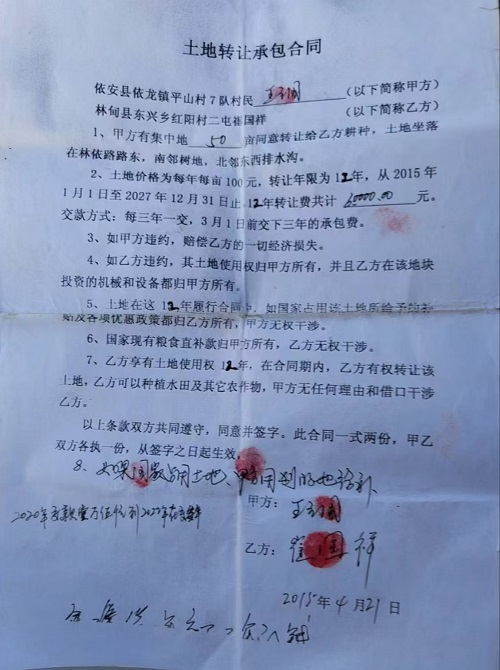 土地转让承包合同
依安县依龙镇平山村7队村民 （以下简称甲方）
林甸县东兴乡红阳村二屯崔国祥 （以下简称乙方）
1、甲方有集中地 50 亩同意转让给乙方耕种，土地坐落
在林依路路东，南邻树地，北邻东西排水沟。
2、土地价格为每年每亩100元，转让年限为12年，从2015年
1月1日至2027年12月31日止12年转让费共计 60000.00 元。
交款方式：每三年一交，3月1日前交下三年的承包费。
3、如甲方违约，赔偿乙方的一切经济损失。
4、如乙方违约，其土地使用权归甲方所有，并且乙方在该地块
投资的机械和设备都归甲方所有。
5、土地在这12年履行合同中，如国家占用该土地所给予的补
贴及各项优惠政策都归乙方所有，甲方无权干涉。
6、国家现有粮食直补款归甲方所有，乙方无权干涉。
7、乙方享有土地使用权12年，在合同期内，乙方有权转让该
土地，乙方可以种植水田及其它农作物，甲方无任何理由和借口干涉
乙方。
以上条款双方共同遵守，同意并签字。此合同一式两份，甲乙
双方各执一份，从签字之日起生效。
8、如果国家占用土地、甲方用别的地给补
甲方：
乙方：崔国祥
2015年4月21日